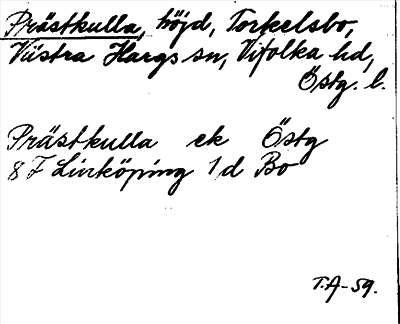 Prästkulla, höjd, Torkelsbo,
Västra Hargs sn, Vifolka hd,
Östg. l.
Prästkulla ek Östg
8 F Linköping 1 d Bo
T.A-59.